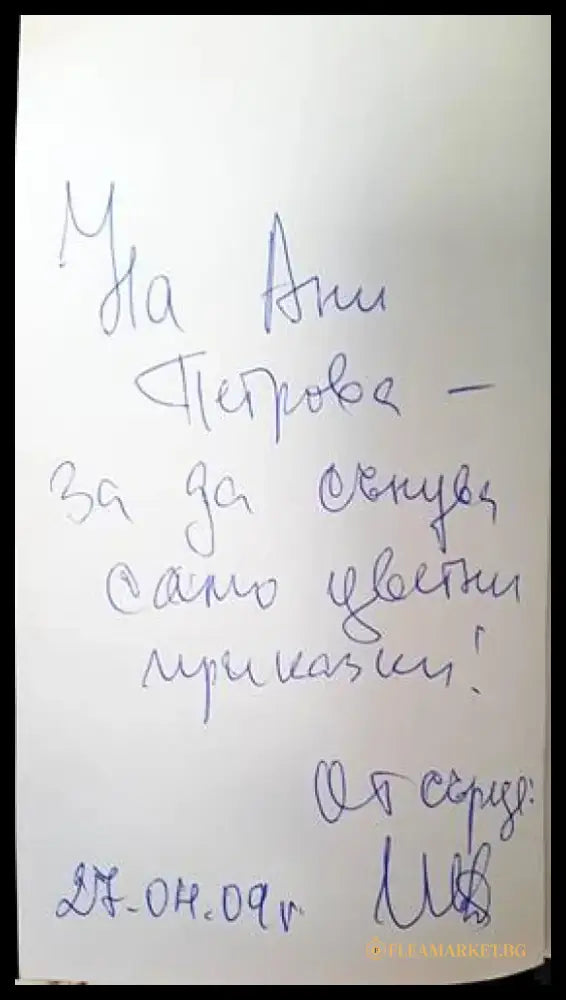 На Ани
Петрова –
за да сънува
само цветни
приказки!
От сърце:
27.04.09 г.
FLEAMARKET.BG